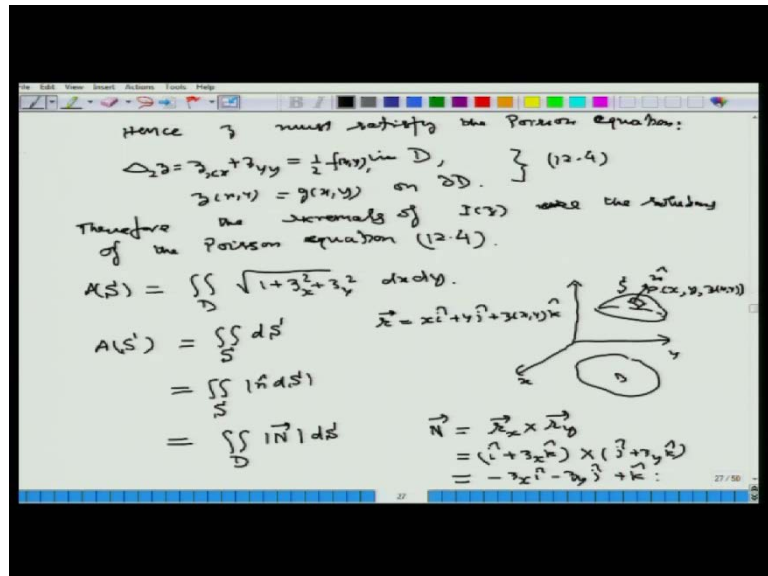 File Edit View Insert Actions Tools Help
Hence z must satisfy the Poisson equation:
Δ₂z = z_xx + z_yy = ½ f(x,y), in D,
z(x,y) = g(x,y) on ∂D. } (12.4)
Therefore the extremals of I(z) are the solutions
of the Poisson equation (12.4).
A(S) = ∬_D √(1 + z_x² + z_y²) dx dy.
r⃗ = x î + y ĵ + z(x,y) k̂
A(S) = ∬_S dS
= ∬_S |n̂ dS|
= ∬_D |N⃗| dS
S n̂ P(x, y, z(x,y))
x y D
N⃗ = r⃗_x × r⃗_y
= (î + z_x k̂) × (ĵ + z_y k̂)
= - z_x î - z_y ĵ + k̂ :
27 / 50
27